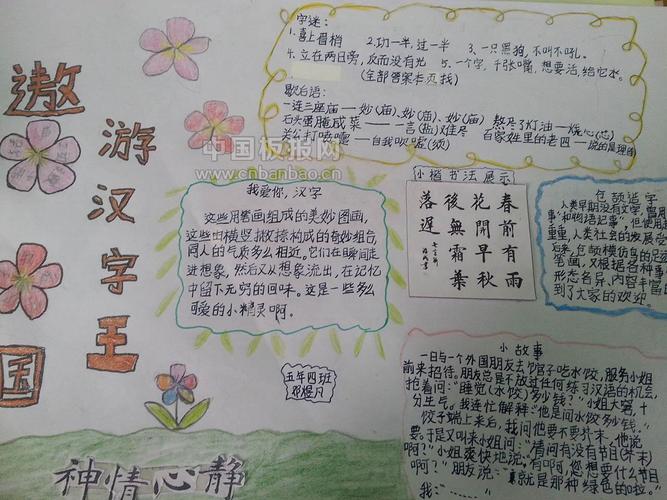 遨
游
汉
字
王
国
字迷：
1.喜上眉梢 2.功一半，过一半 3、一只黑狗，不叫不吼。
4.立在两日旁，反而没有光 5、一个字，千张嘴，想要活，给它水。
(全部答案本页找)
歇台语：
一连三座庙——妙(庙)、妙(庙)、妙(庙) 熬尽了灯油——烧心(芯)
石头蛋腌成菜——一言(盐)难尽 百家姓里的老四——说的是理
关公打喷嚏——自我吹嘘(须)
中国板报网
www.cnbanbao.cn
我爱你，汉字
这些用笔画组成的美妙图画，
这些由横竖撇捺构成的奇妙组合，
同人的气质多么相近。它们在瞬间走
进想象，然后又从想象流出，在记忆
中留下无穷的回味。这是一些多么
可爱的小精灵啊。
小楷书法展示
春前有雨
花開早秋
後無霜葉
落遲
仓颉造字
人类早期没有文字，曾用
事"和物语记事"，但使用
重重，人类社会的发展
后来，仓颉模仿鸟的足迹
笔画，又根据各种事
形态各异、内容丰富的
到了大家的欢迎
五年四班
小故事
一日与一个外国朋友去饺子馆吃水饺，服务小姐
前来招待。朋友总是不放过任何练习汉语的机会，
抢着问："睡觉(水饺)多少钱？"小姐大窘，十
分生气。我连忙解释"他是问水饺多少钱。"
饺子端上来后，我问他要不要芥末，他说
要。于是又叫来小姐问："请问有没有节目(芥末)
啊？"小姐爽快地说："有啊，您想要什么节目
啊？"朋友说："就是那种绿色的啦。"
我：……
神情心静